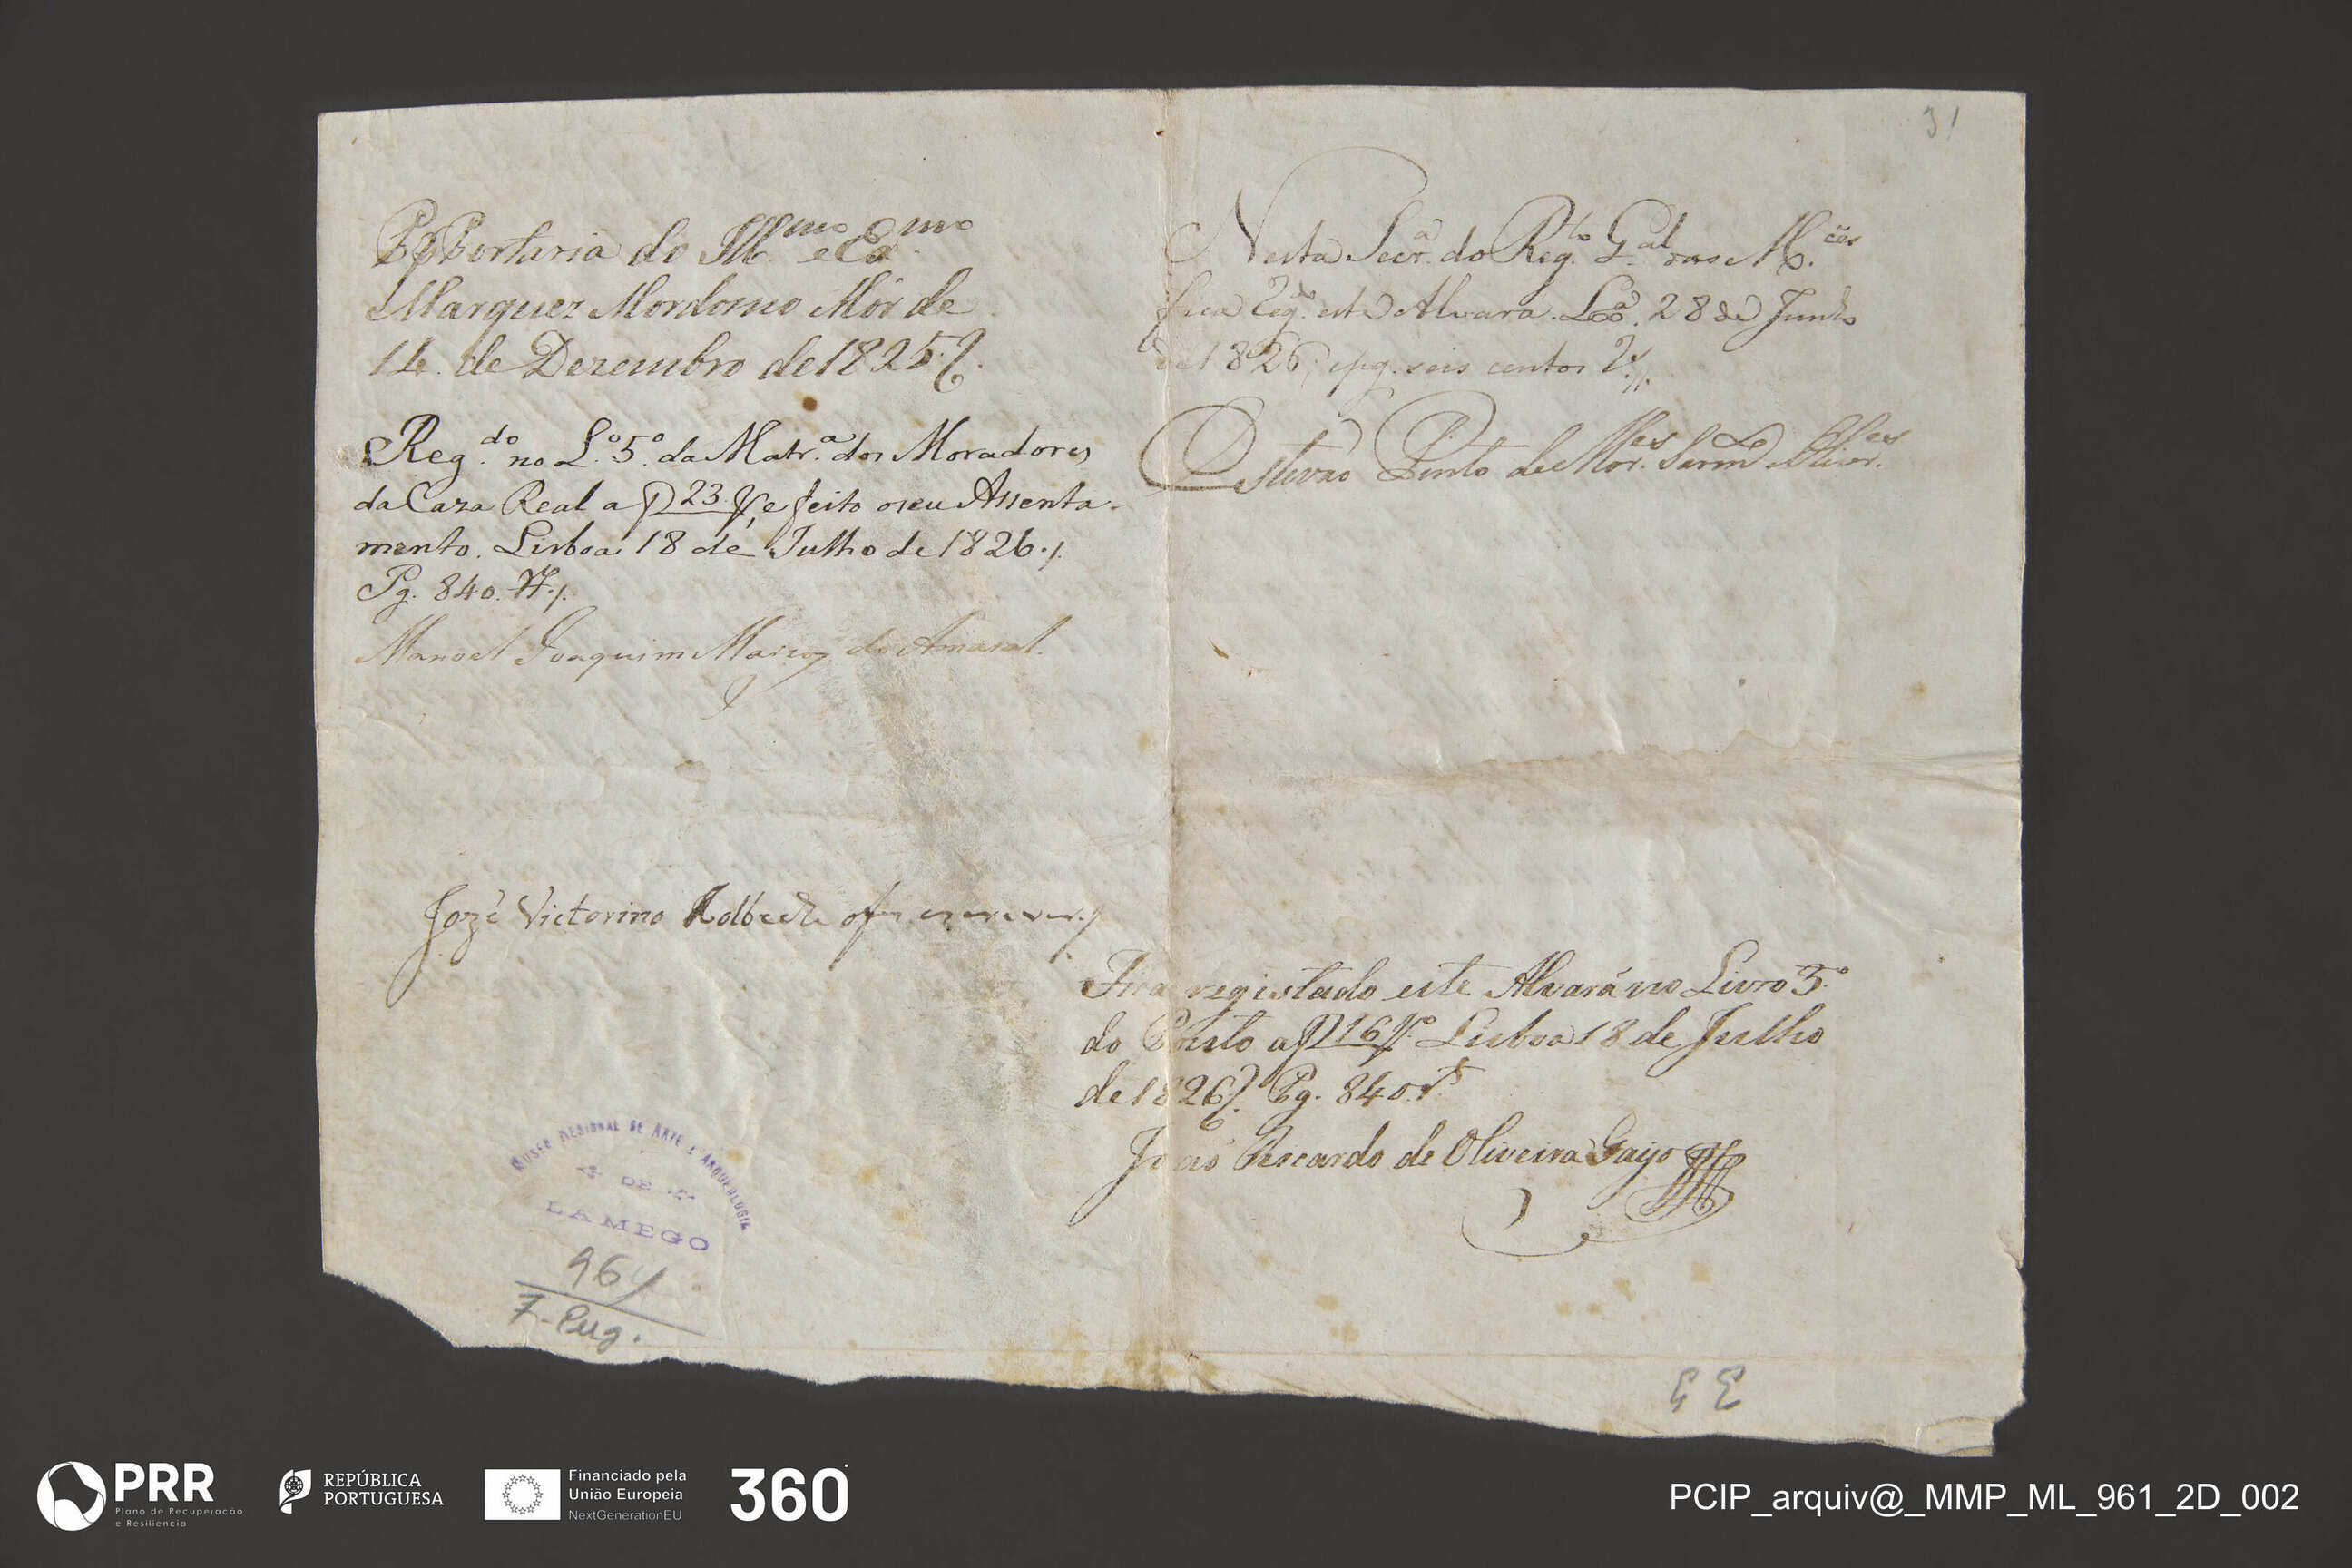 P. Portaria do Ill.mo e Ex.mo
Marquez Mordomo Mór de
14. de Dezembro de 1825.
Reg.do no L.o 5.o da Matr.a dos Moradores
da Caza Real a f 23 V, e feito o seu Assenta-
mento. Lisboa 18 de Julho de 1826./.
Pg. 840. rs./.
Manoel Joaquim do Amaral.
Jozé Victorino Holbeche o fez escrever./
MUSEU REGIONAL DE ARTE E ARQUEOLOGIA
DE
LAMEGO
961
7-Perg.
31
Nesta Secr.a do Reg.to G.al das M.cês
fica reg.do este Alvara. Lx.a 28 de Junho
de 1826, e pg. seis centos r.s
Estevão Pinto de Mor.es Sarm.to
Fica registado este Alvará no Livro 5.o
do a f 16 V.o Lisboa 18 de Julho
de 1826. Pg. 840 r.s
João Ricardo de Oliveira Gayo
33
PRR
Plano de Recuperação
e Resiliência
REPÚBLICA
PORTUGUESA
Financiado pela
União Europeia
NextGenerationEU
360°
PCIP_arquiv@_MMP_ML_961_2D_002